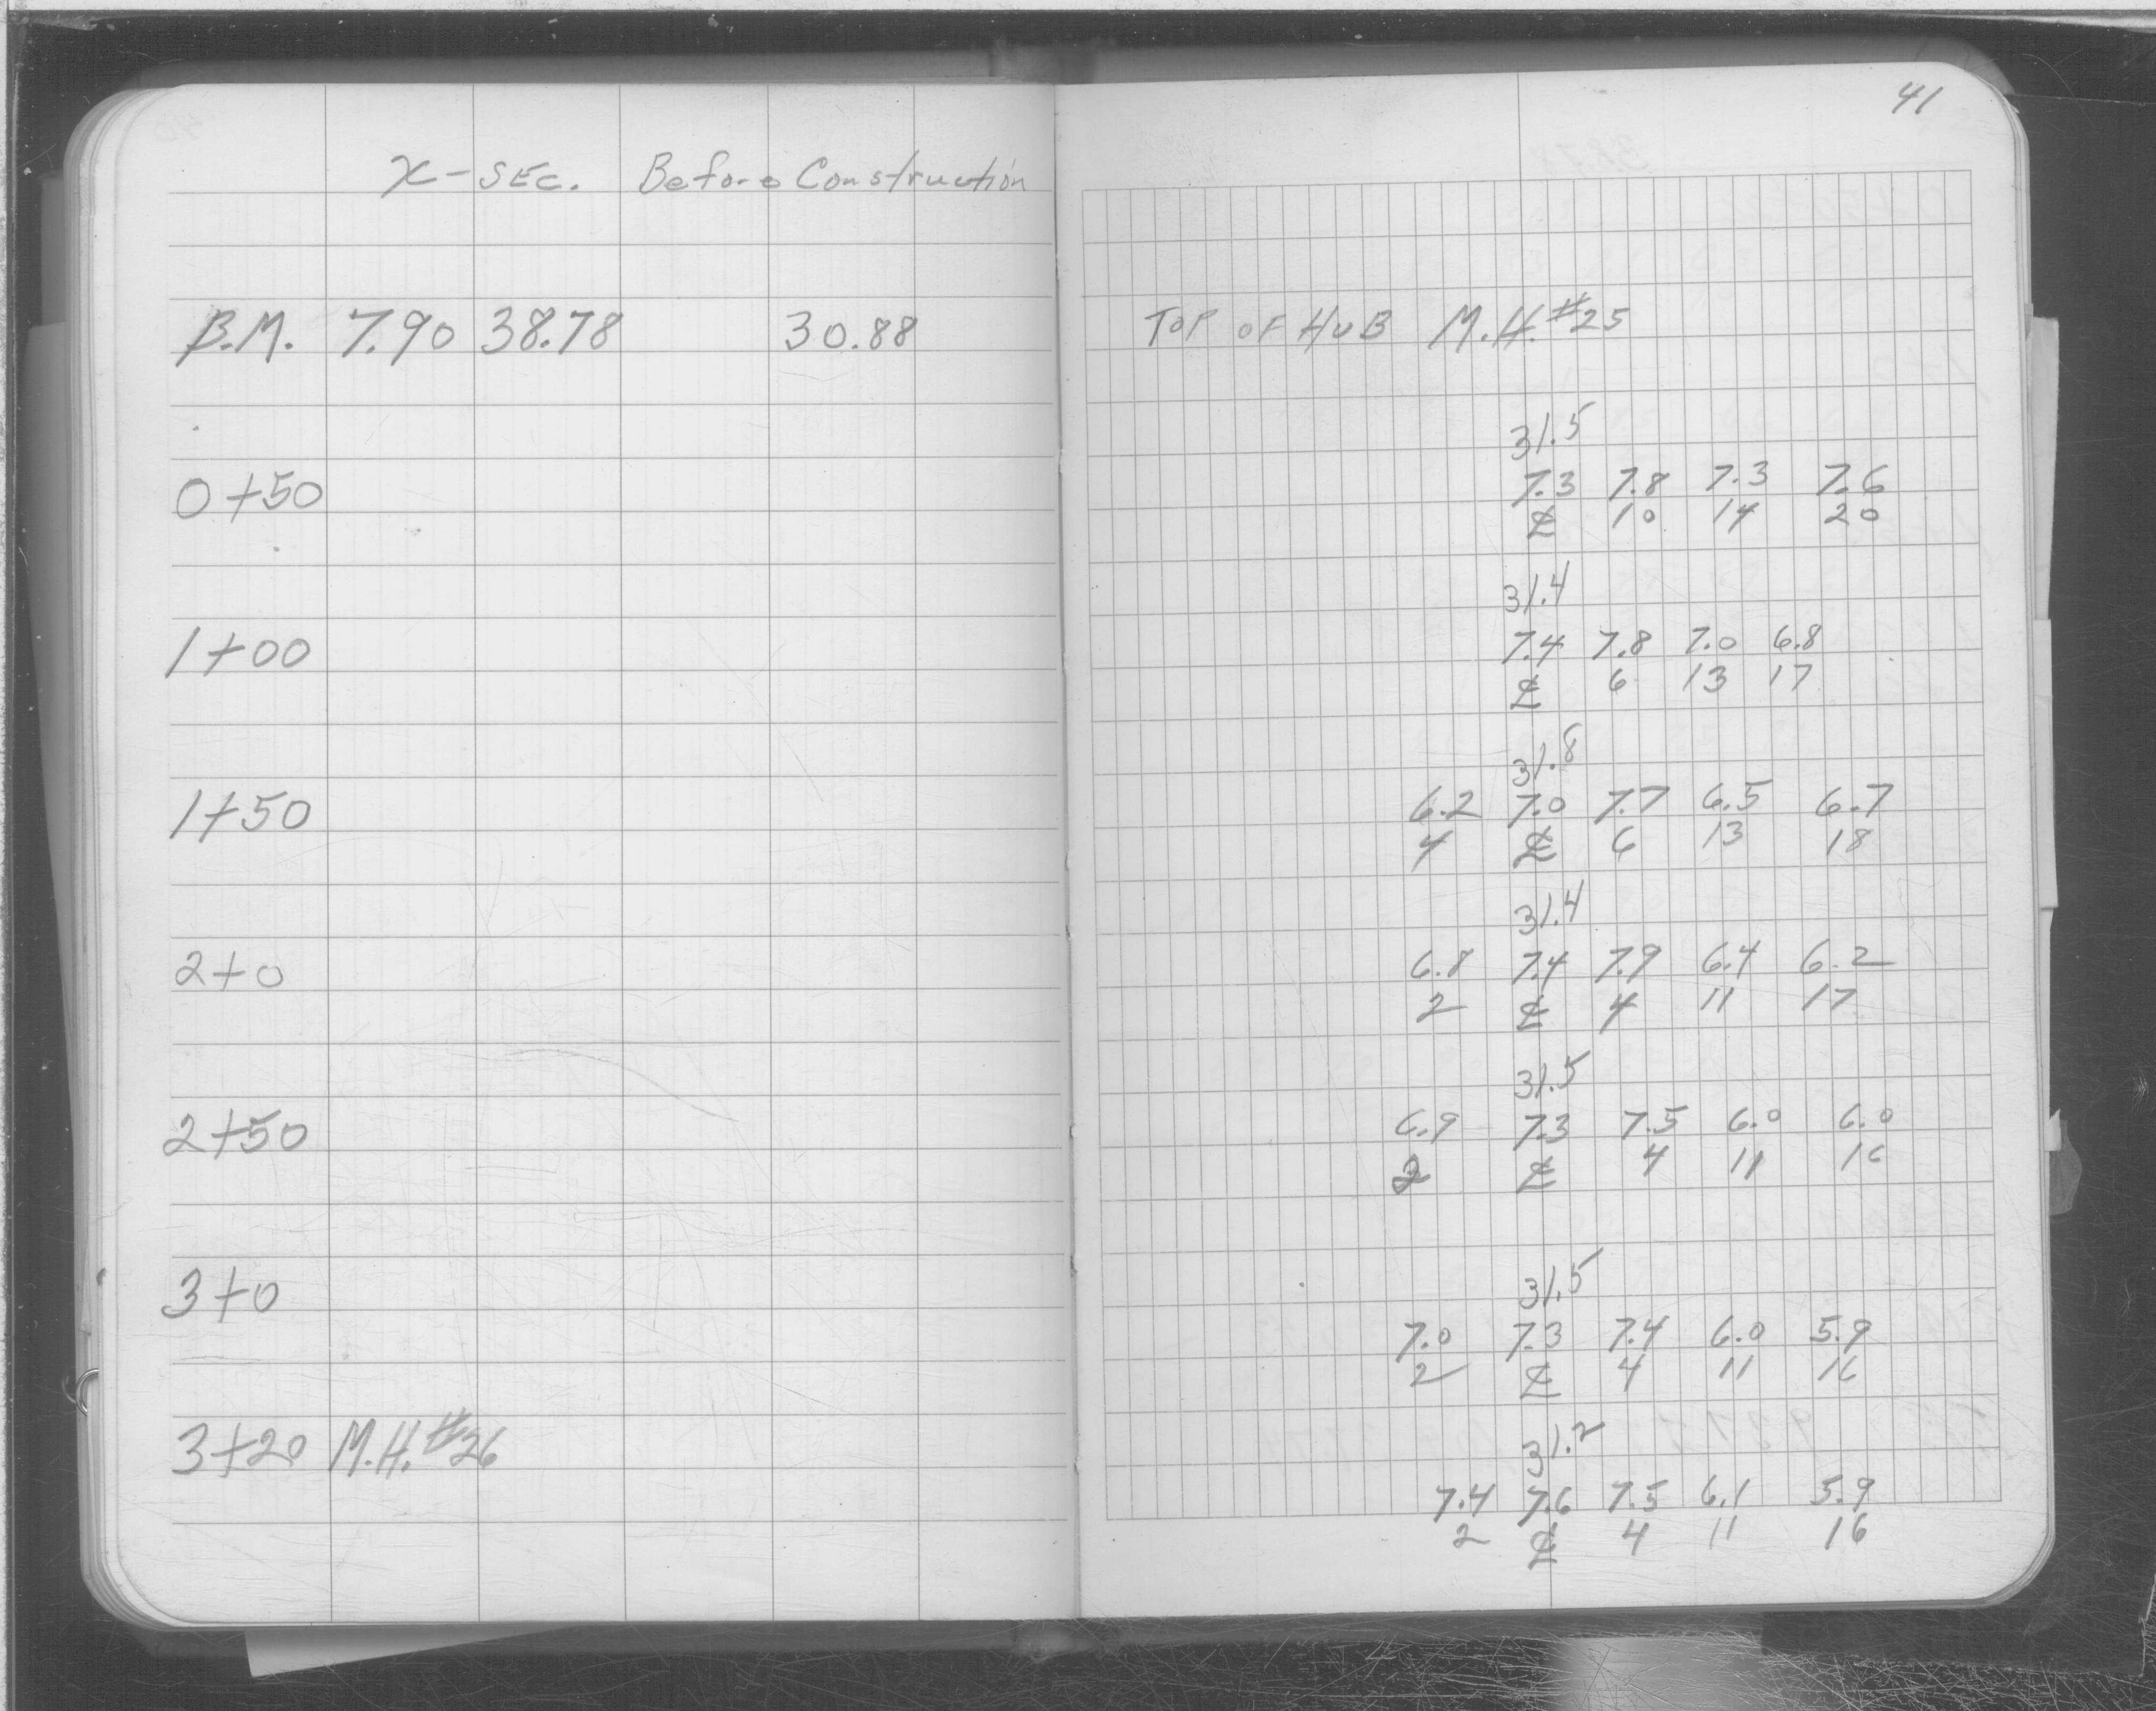 41
X-SEC. Before Construction
B.M. 7.90 38.78 30.88 TOP OF HUB M.H.#25
31.5
0+50 7.3 7.8 7.3 7.6
℄ 10 14 20
31.4
1+00 7.4 7.8 7.0 6.8
℄ 6 13 17
31.8
1+50 6.2 7.0 7.7 6.5 6.7
4 ℄ 6 13 18
31.4
2+0 6.8 7.4 7.9 6.4 6.2
2 ℄ 4 11 17
31.5
2+50 6.9 7.3 7.5 6.0 6.0
2 ℄ 4 11 16
31.5
3+0 7.0 7.3 7.4 6.0 5.9
2 ℄ 4 11 16
31.2
3+20 M.H.#26 7.4 7.6 7.5 6.1 5.9
2 ℄ 4 11 16